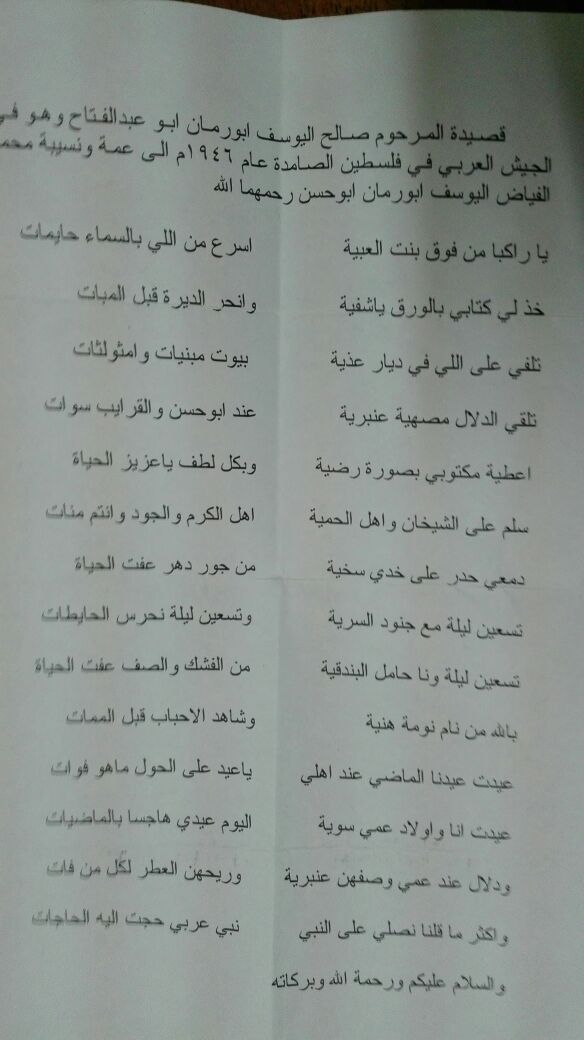 قصيدة المرحوم صالح اليوسف ابورمان ابو عبدالفتاح وهو في
الجيش العربي في فلسطين الصامدة عام ١٩٤٦م الى عمة ونسيبة
الفياض اليوسف ابورمان ابوحسن رحمهما الله
يا راكبا من فوق بنت العبية اسرع من اللي بالسماء حايمات
خذ لي كتابي بالورق ياشفية وانحر الديرة قبل المبات
تلفي على اللي في ديار عذية بيوت مبنيات وامثولثات
تلقي الدلال مصهية عنبرية عند ابوحسن والقرايب سوات
اعطية مكتوبي بصورة رضية وبكل لطف ياعزيز الحياة
سلم على الشيخان واهل الحمية اهل الكرم والجود وانتم منات
دمعي حدر على خدي سخية من جور دهر عفت الحياة
تسعين ليلة مع جنود السرية وتسعين ليلة نحرس الحايطات
تسعين ليلة ونا حامل البندقية من الفشك والصف عفت الحياة
بالله من نام نومة هنية وشاهد الاحباب قبل الممات
عيدت عيدنا الماضي عند اهلي ياعيد على الحول ماهو فوات
عيدت انا واولاد عمي سوية اليوم عيدي هاجسا بالماضيات
ودلال عند عمي وصفهن عنبرية وريحهن العطر لكل من فات
واكثر ما قلنا نصلي على النبي نبي عربي حجت اليه الحاجات
والسلام عليكم ورحمة الله وبركاته